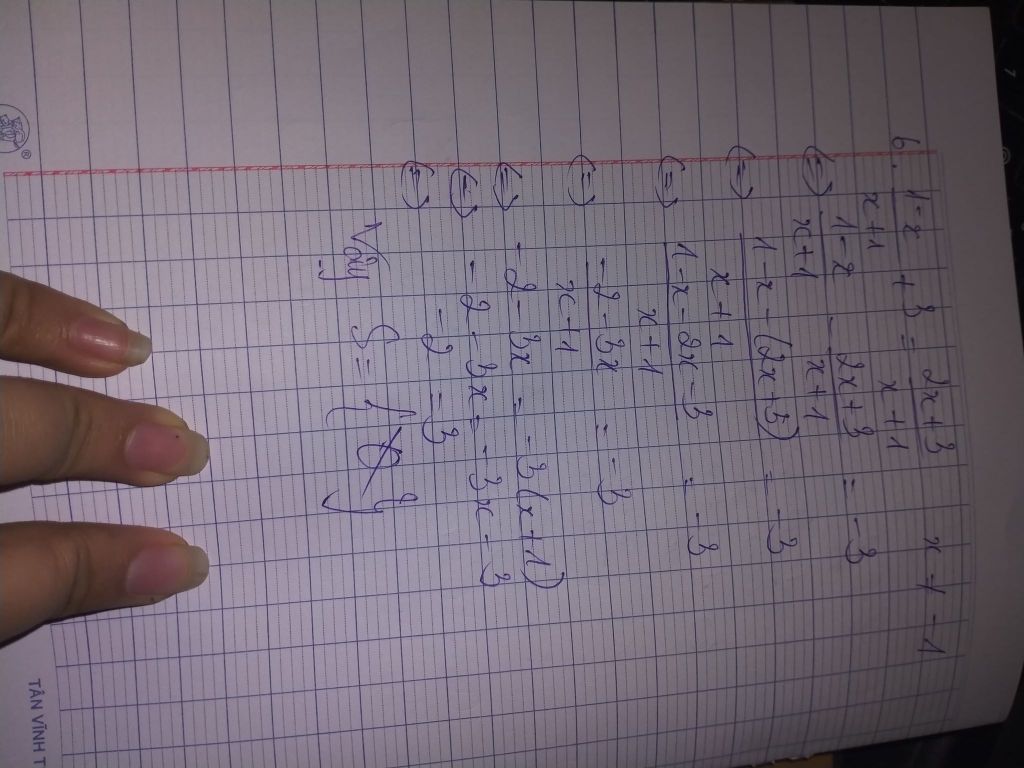 6. \frac{1-x}{x+1} + 3 = \frac{2x+3}{x+1} x ≠ -1
⇔ \frac{1-x}{x+1} - \frac{2x+3}{x+1} = -3
⇔ \frac{1-x-(2x+3)}{x+1} = -3
⇔ \frac{1-x-2x-3}{x+1} = -3
⇔ \frac{-2-3x}{x+1} = -3
⇔ -2-3x = -3(x+1)
⇔ -2-3x = -3x-3
⇔ -2 = -3
Vậy S = {∅}
®
TÂN VĨNH T